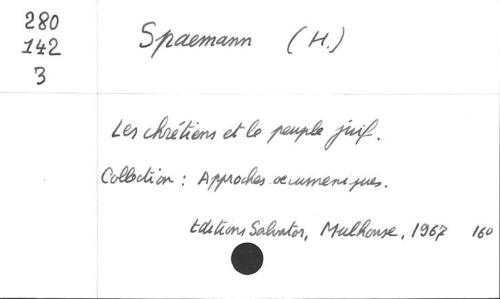 280
142
3
Spaemann (H.)
Les chrétiens et le peuple juif.
Collection : Approches œcuméniques.
Editions Salvator, Mulhouse, 1967 160